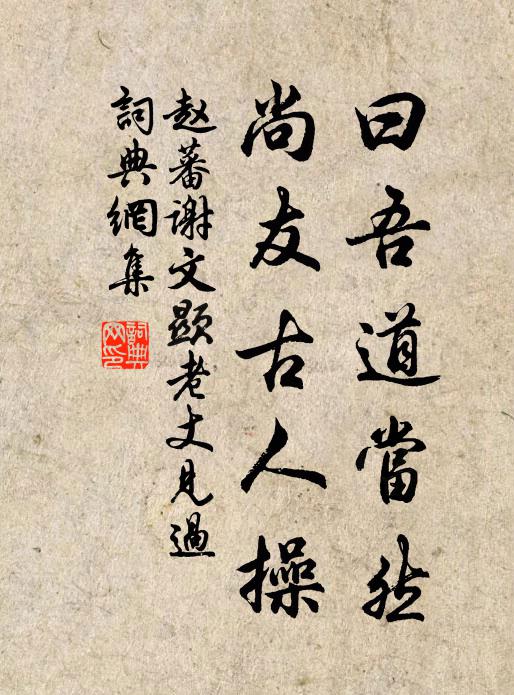 曰吾道當然
尚友古人操
赵蕃谢文顯老丈見過
詞典網集
詞典網印